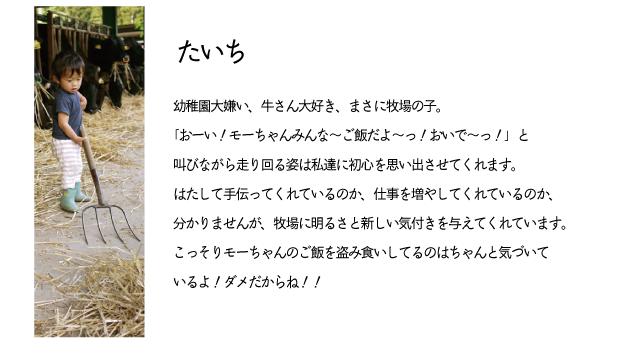 たいち
幼稚園大嫌い、牛さん大好き、まさに牧場の子。
「おーい！モーちゃんみんな～ご飯だよ～っ！おいで～っ！」と
叫びながら走り回る姿は私達に初心を思い出させてくれます。
はたして手伝ってくれているのか、仕事を増やしてくれているのか、
分かりませんが、牧場に明るさと新しい気付きを与えてくれています。
こっそりモーちゃんのご飯を盗み食いしてるのはちゃんと気づいて
いるよ！ダメだからね！！